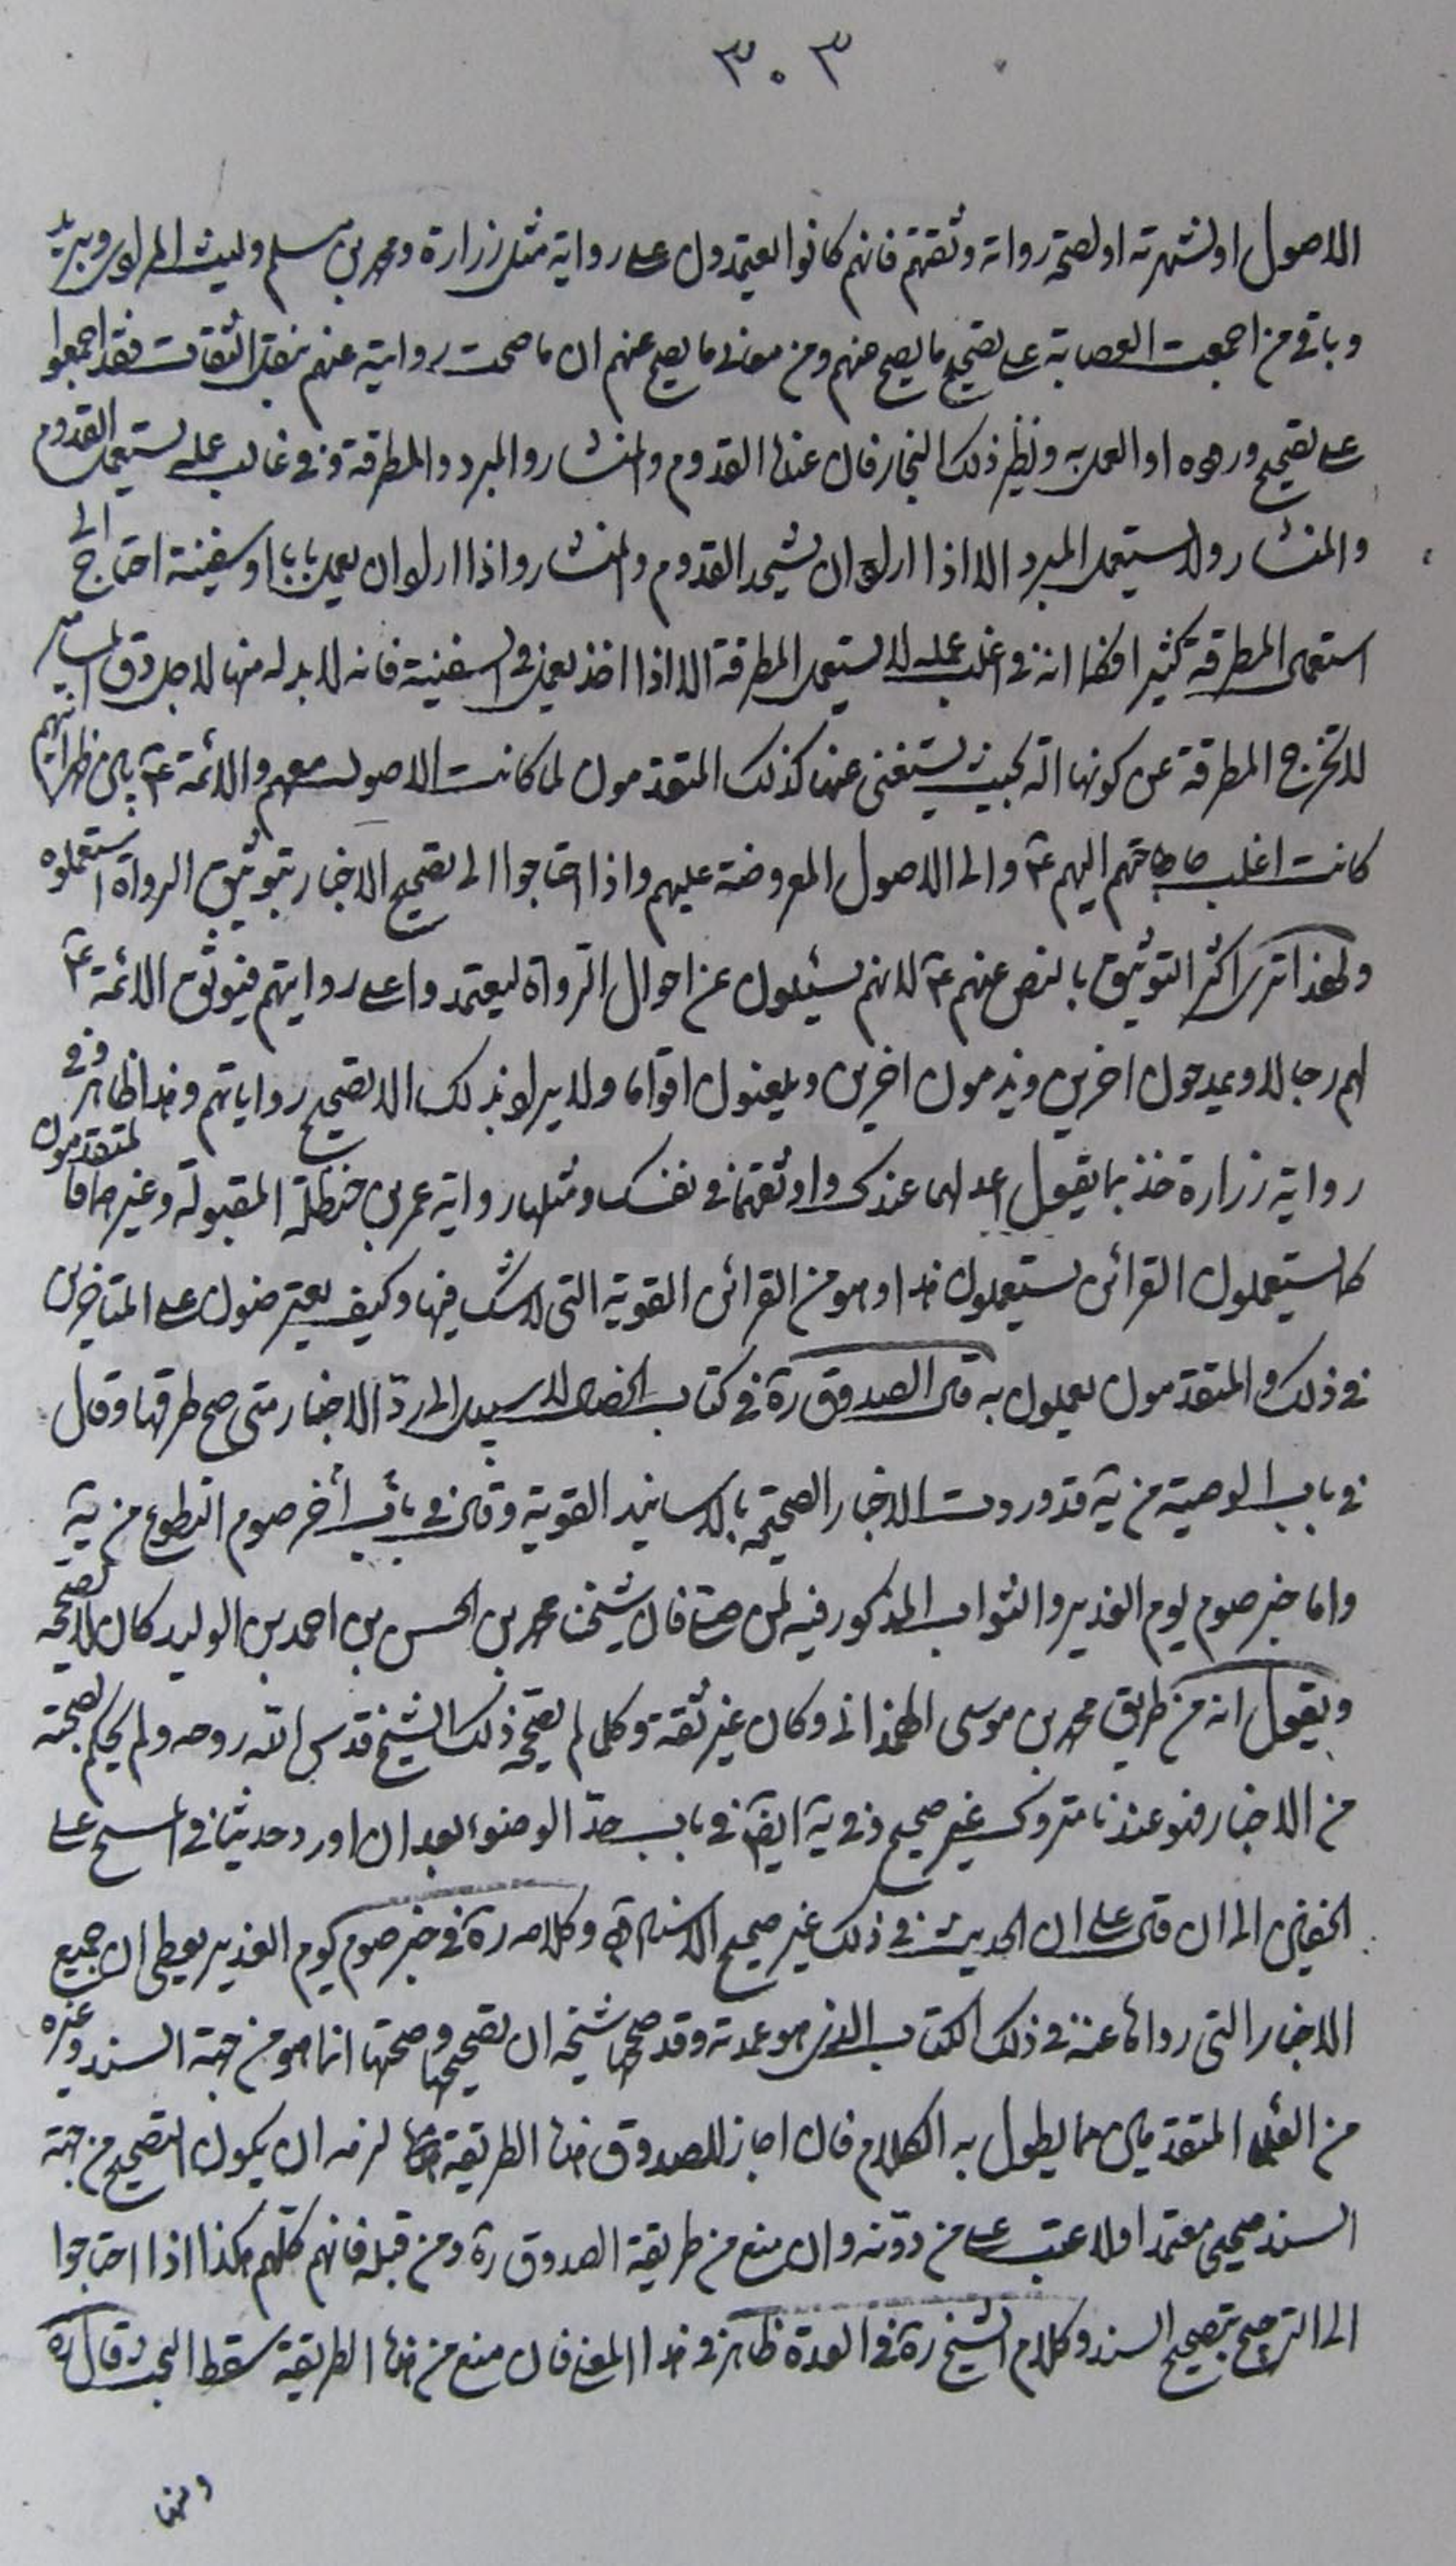 ٣٠٣
الاصول او لشهرته او لصحة رواته وثقتهم فانهم كانوا يعتمدون على رواية مثل زرارة ومحمد بن مسلم وليث المرادى وبريد
وباقى من اجمعت العصابة على تصحيح ما يصح عنهم ومن معانى ما يصح عنهم ان ما صحت روايته عنهم بنقل الثقات فقد اجمعوا
على تصحيح ورده او العمل به ونظير ذلك النجار فان عنده القدوم والمنشار والمبرد والمطرقة وفى غالب عمله يستعمل القدوم
والمنشار ولا يستعمل المبرد الا اذا اراد ان يشحد القدوم والمنشار واذا اراد ان يعمل بابا او سفينة احتاج الى
استعمال المطرقة كثيرا فكما انه فى اغلب عمله لا يستعمل المطرقة الا اذا اخذ يعمل فى السفينة فانه لا بد له منها لاجل دق المسامير
لا تخرج المطرقة عن كونها آلة بحيث يستغنى عنها كذلك المتقدمون لما كانت الاصول معهم والائمة ع بين ظهرانيهم
كانت اغلب حاجتهم اليهم ع والى الاصول المعروضة عليهم واذا احتاجوا الى تصحيح الاخبار بتوثيق الرواة استعملوه
ولهذا ترى اكثر التوثيق بالنص عنهم ع لانهم يسئلون عن احوال الرواة ليعتمدوا على روايتهم فيوثق الائمة ع
لهم رجالا ويمدحون اخرين ويذمون اخرين ويلعنون اقواما ولا يراد بذلك الا تصحيح رواياتهم وهذا ظاهر وفى
رواية زرارة خذ بما يقول اعدلهما عندك واوثقهما فى نفسك ومثلها رواية عمر بن حنظلة المقبولة وغيرهما فالمتقدمون
كما يستعملون القرائن يستعملون هذا وهو من القرائن القوية التى لا شك فيها وكيف يعترضون على المتاخرين
فى ذلك والمتقدمون يعملون به قال الصدوق ره فى كتاب الخصال لا سبيل الى ردّ الاخبار متى صح طرقها وقال
فى باب الوصية من يه قد وردت الاخبار الصحيحة بالاسانيد القوية وقال فى باب أخر صوم التطوع من يه
واما خبر صوم يوم الغدير والثواب المذكور فيه لمن صامه فان شيخنا محمد بن الحسن بن احمد بن الوليد كان لا يصححه
ويقول انه من طريق محمد بن موسى الهمذانى وكان غير ثقة وكلما لم يصححه ذلك الشيخ قدس الله روحه ولم يحكم بصحته
من الاخبار فهو عندنا متروك غير صحيح وفى يه ايضا فى باب حدّ الوضوء بعد ان اورد حديثا فى المسح على
الخفين الى ان قال على ان الحديث فى ذلك غير صحيح الاسناد وكلامه ره فى خبر صوم يوم الغدير يعطى ان جميع
الاخبار التى رواها عنه فى ذلك الكتاب الذى هو عمدته وقد صححها شيخه ان تصحيحها وصحتها انما هو من جهة السند وغيره
من القدماء المتقدمين مما يطول به الكلام فان اجاز للصدوق هذه الطريقة لزمه ان يكون التصحيح من جهة
السند صحيحا معتمدا ولا عتب على من دوّنه وان منع من طريقة الصدوق ره ومن قبله فانهم كلهم هكذا اذا احتاجوا
الى الترجيح بتصحيح السند وكلام الشيخ ره فى العدة ظاهر فى هذا المعنى فان منع من هذه الطريقة سقط البحث وقال ره